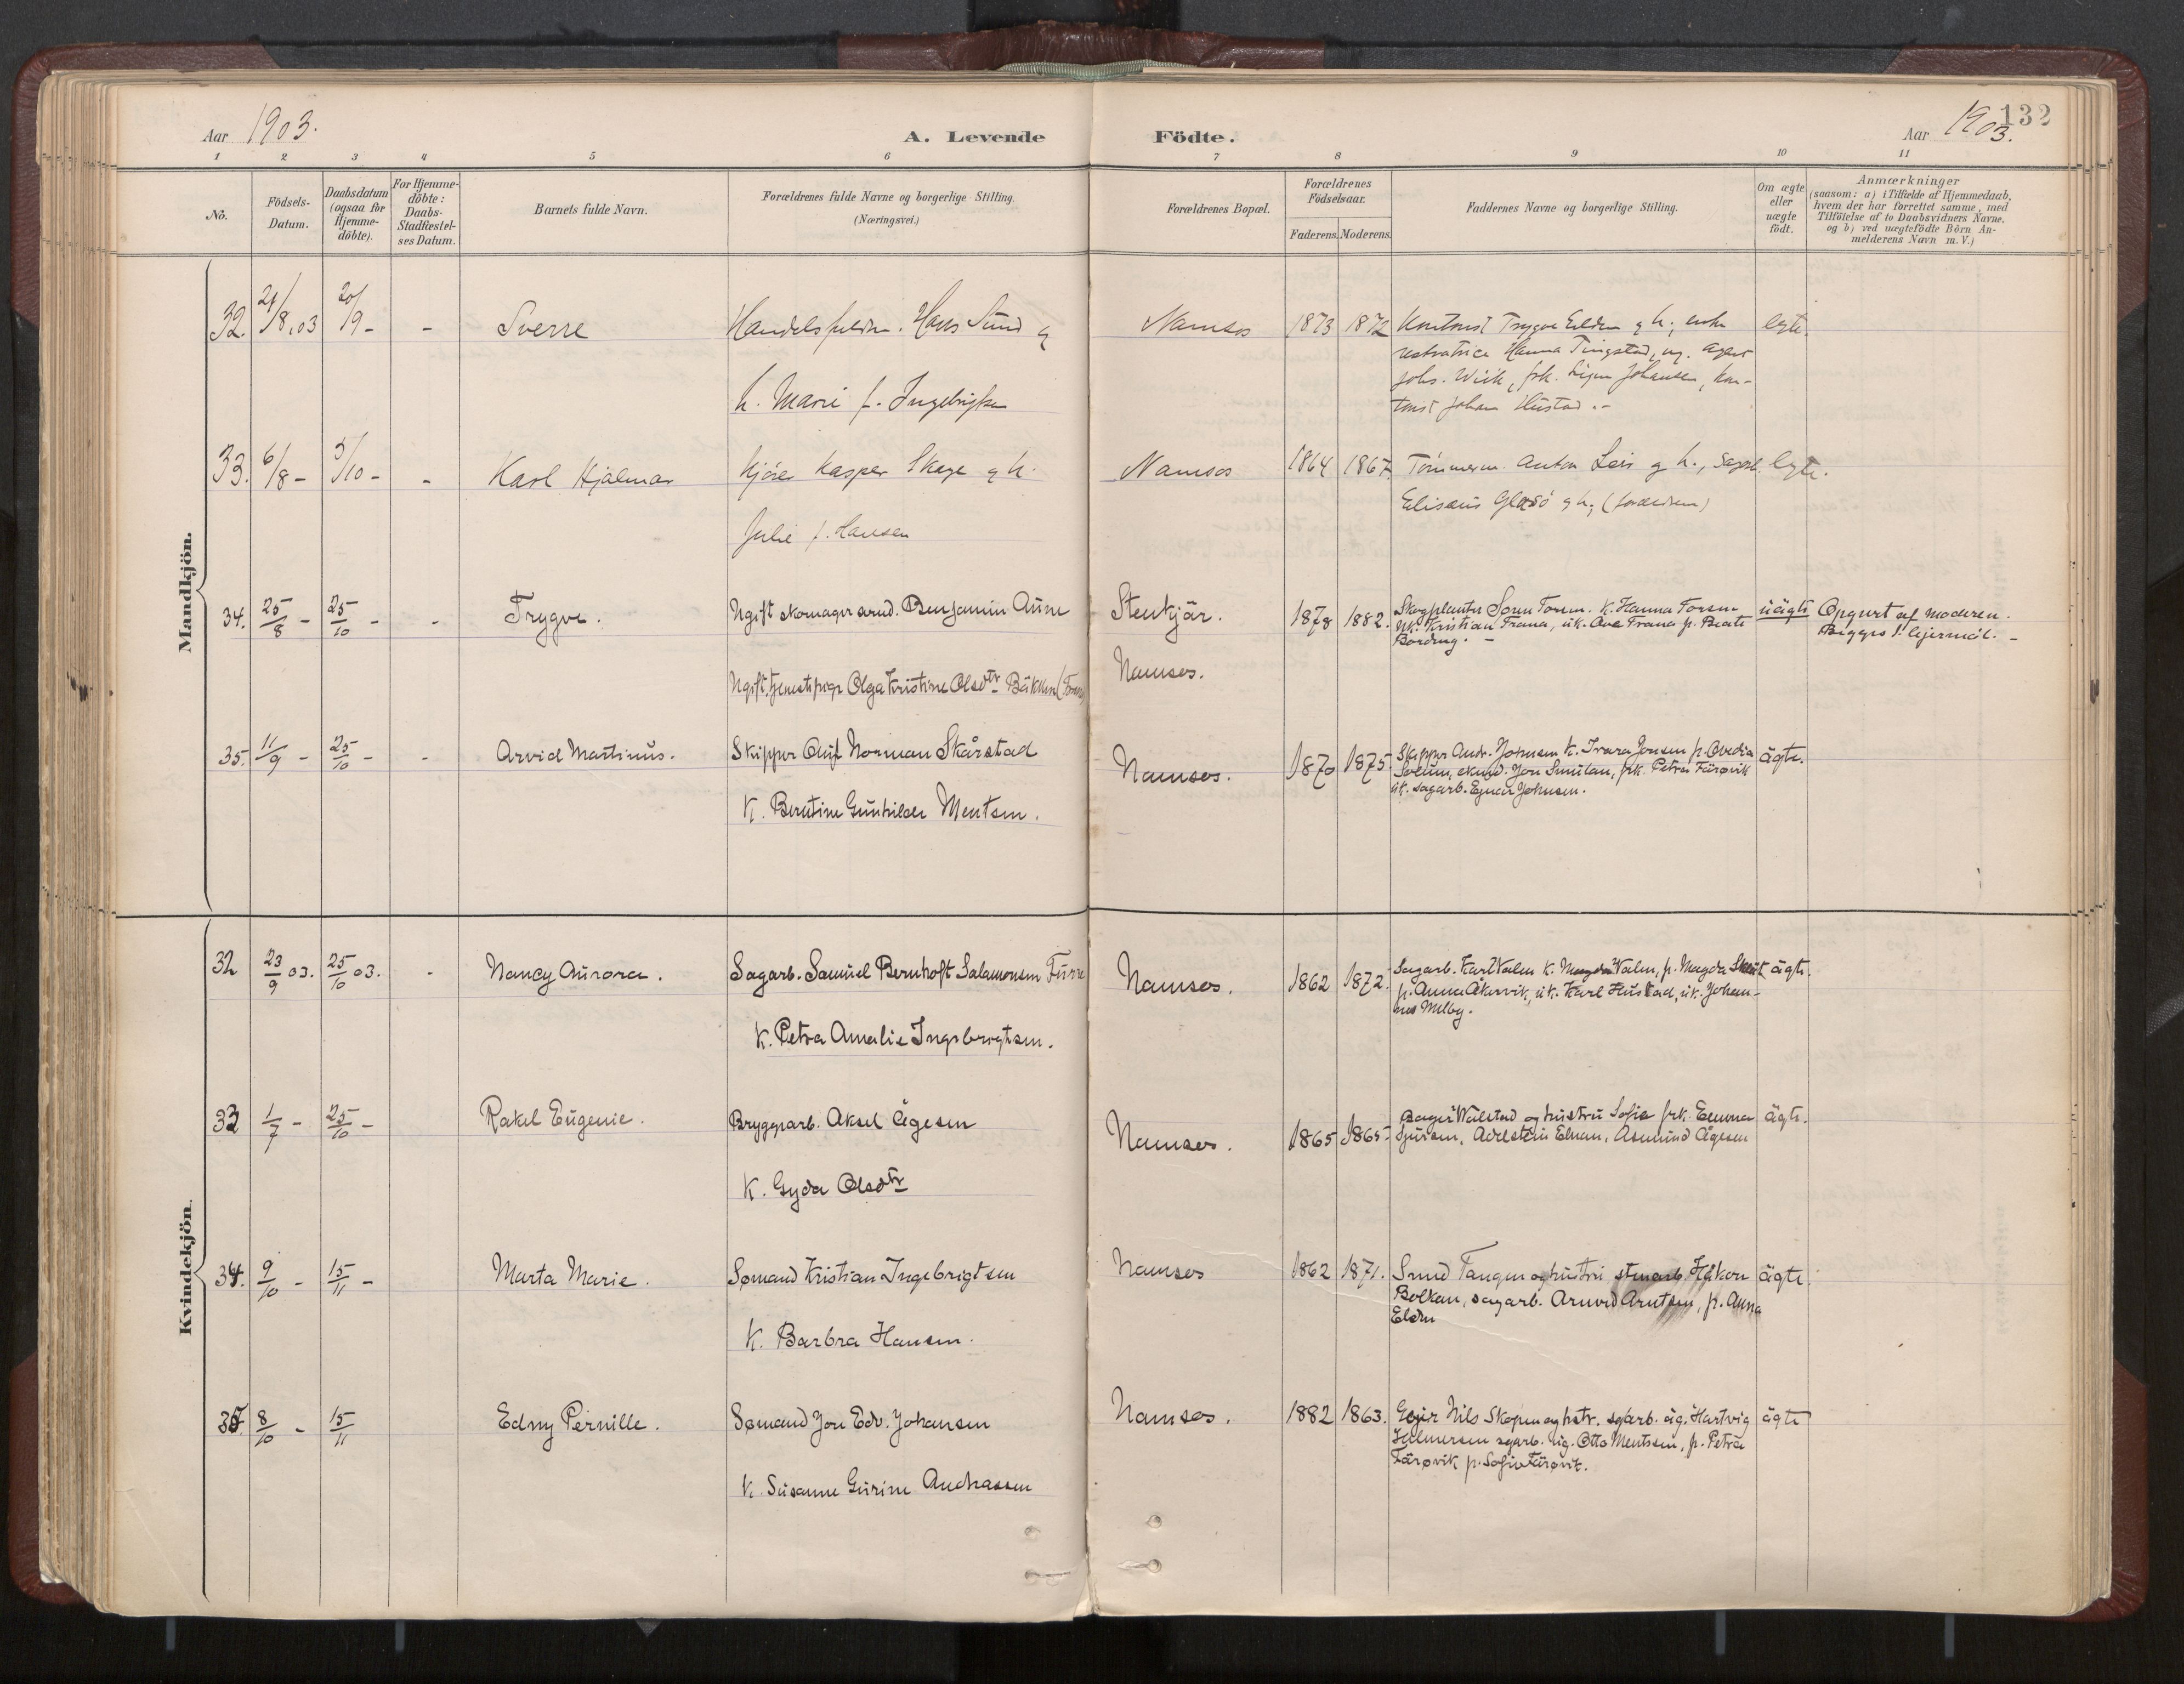 132
Aar 1903.
A. Levende Födte.
Aar 1903.
1 2 3 4 5 6 7 8 9 10 11
No.
Födsels-
Datum.
Daabsdatum
(ogsaa for
Hjemme-
döbte).
For Hjemme-
döbte:
Daabs-
Stadfæstel-
ses Datum.
Barnets fulde Navn.
Forældrenes fulde Navne og borgerlige Stilling.
(Næringsvei.)
Forældrenes Bopæl.
Forældrenes
Födselsaar.
Faderens. Moderens.
Faddernes Navne og borgerlige Stilling.
Om ægte
eller
uægte
födt.
Anmærkninger
(saasom: a) i Tilfælde af Hjemmedaab,
hvem der har forrettet samme, med
Tilföielse af to Daabsvidners Navne,
og b) ved uægtefödte Börn An-
melderens Navn m. V.)
Mandkjön.
32. 21/8.03 20/9 - - Sverre
Hans Sund og
h. Marie f. Ingebrigtsen
Namsos 1873 1872
Johs. Wiik, frk. Johansen, kon-
torist Johan Hustad.-
33. 6/8 - 5/10 - - Karl Hjalmar
Kasper Skage g h.
Julie f. Hansen
Namsos 1864 1867.
Tömmerm. Anton Leir g h., sagarb.
Elisæus Glasö g h; (forældren)
34. 25/8 - 25/10 - - Trygve.
Ugift skomagersvend. Benjamin Aune
Ugift, tjenestepige Olga Kristine Olsdtr Bäkken
Stenkjär.
Namsos.
1878 1882.
Skogplanter Sören Forsen. K. Hanna Forsen
uk. Kristian Trana, uk. Ove Trana p. Beate
Bördung. -
üägte
Opgivet af moderen.
Begges 1. lejermål. -
35. 11/9 - 25/10 - - Arvid Martinus.
Skipper Oluf Norman Skårstad
K. Berntine Gunhilde Mentsen.
Namsos. 1870 1875.
Skipper Andr. Johnsen K. Ivara Jonsen p. Ovedia
Solum, Jon Smulan, frk. Petra Färøvik
uk. sagarb. Ejnar Johnsen.
ägte.
Kvindekjön.
32 23/9 03. 25/10 03. - Nancy Aurora.
Sagarb. Samuel Bernhoft Salamonsen Furre
K. Petra Amalie Ingebrigtsen.
Namsos. 1862 1872.
Sagarb. Karl Valen K. Magda Valen, p. Magda
p. Anna Åkervik, uk. Karl Hustad, uk. Johan-
nes Melby.
ägte.
33 1/7 - 25/10 - Rakel Eugenie.
Bryggarb. Aksel Ågesen
K. Gyda Olsdtr
Namsos. 1865 1865
Bager Walstad og hustru Sofie frk. Emma
Sjursen, Adelstein Elnan, Asmund Ågesen
ägte.
34. 9/10 - 15/11 - Marta Marie.
Sømand Kristian Ingebrigtsen
K. Barbra Hansen.
Namsos 1862 1871.
Smed Tangen og hustru stenarb. Håkon
Bolkan, sagarb. Arnvid Arntsen, p. Anna
Elden
ägte.
35. 8/10 - 15/11 Edny Pernille.
Sømand Jon Edv. Johansen
K. Susanne Gurine Andreassen
Namsos. 1882 1863.
Nils Skogmo og hstr. sgarb. üg. Hartvig
Hilmersen sgarb. üg. Otto Mentsen, p. Petra
Färøvik p. Sofie Färøvik.
ägte